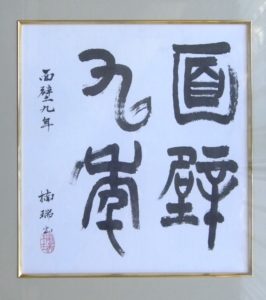 面壁
九年
面壁九年
楠瑞